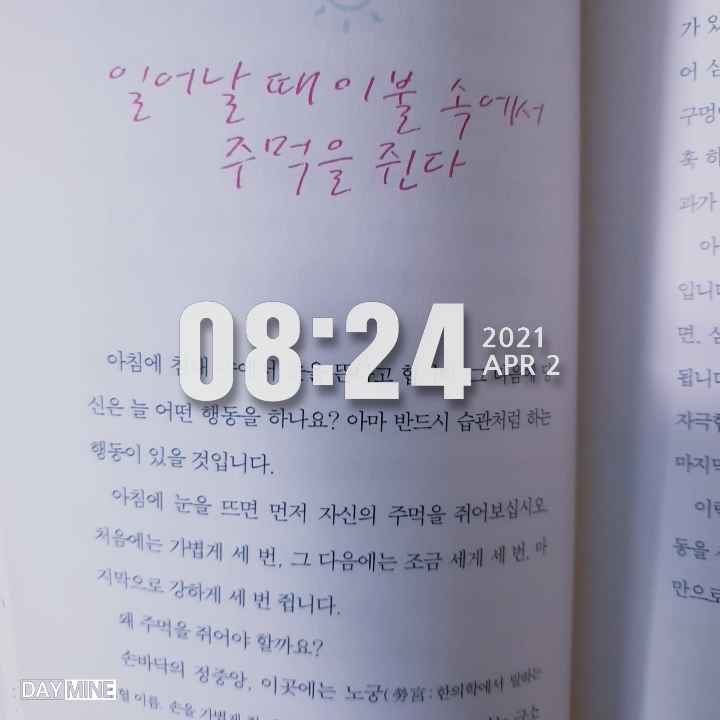 일어날 때 이불 속에서
주먹을 쥔다
08:24
2021
APR 2
아침에 침대 속에서 눈을 뜬다고 합시다. 그 다음에 당
신은 늘 어떤 행동을 하나요? 아마 반드시 습관처럼 하는
행동이 있을 것입니다.
아침에 눈을 뜨면 먼저 자신의 주먹을 쥐어보십시오.
처음에는 가볍게 세 번, 그 다음에는 조금 세게 세 번, 마
지막으로 강하게 세 번 쥡니다.
왜 주먹을 쥐어야 할까요?
손바닥의 정중앙, 이곳에는 노궁(勞宮: 한의학에서 말하는
혈 이름. 손을 가볍게
가 있
어 심
구멍
혹 하
과가
아
입니다
면, 심
됩니다
자극합
마지막
이
동을
만으로
DAYMINE